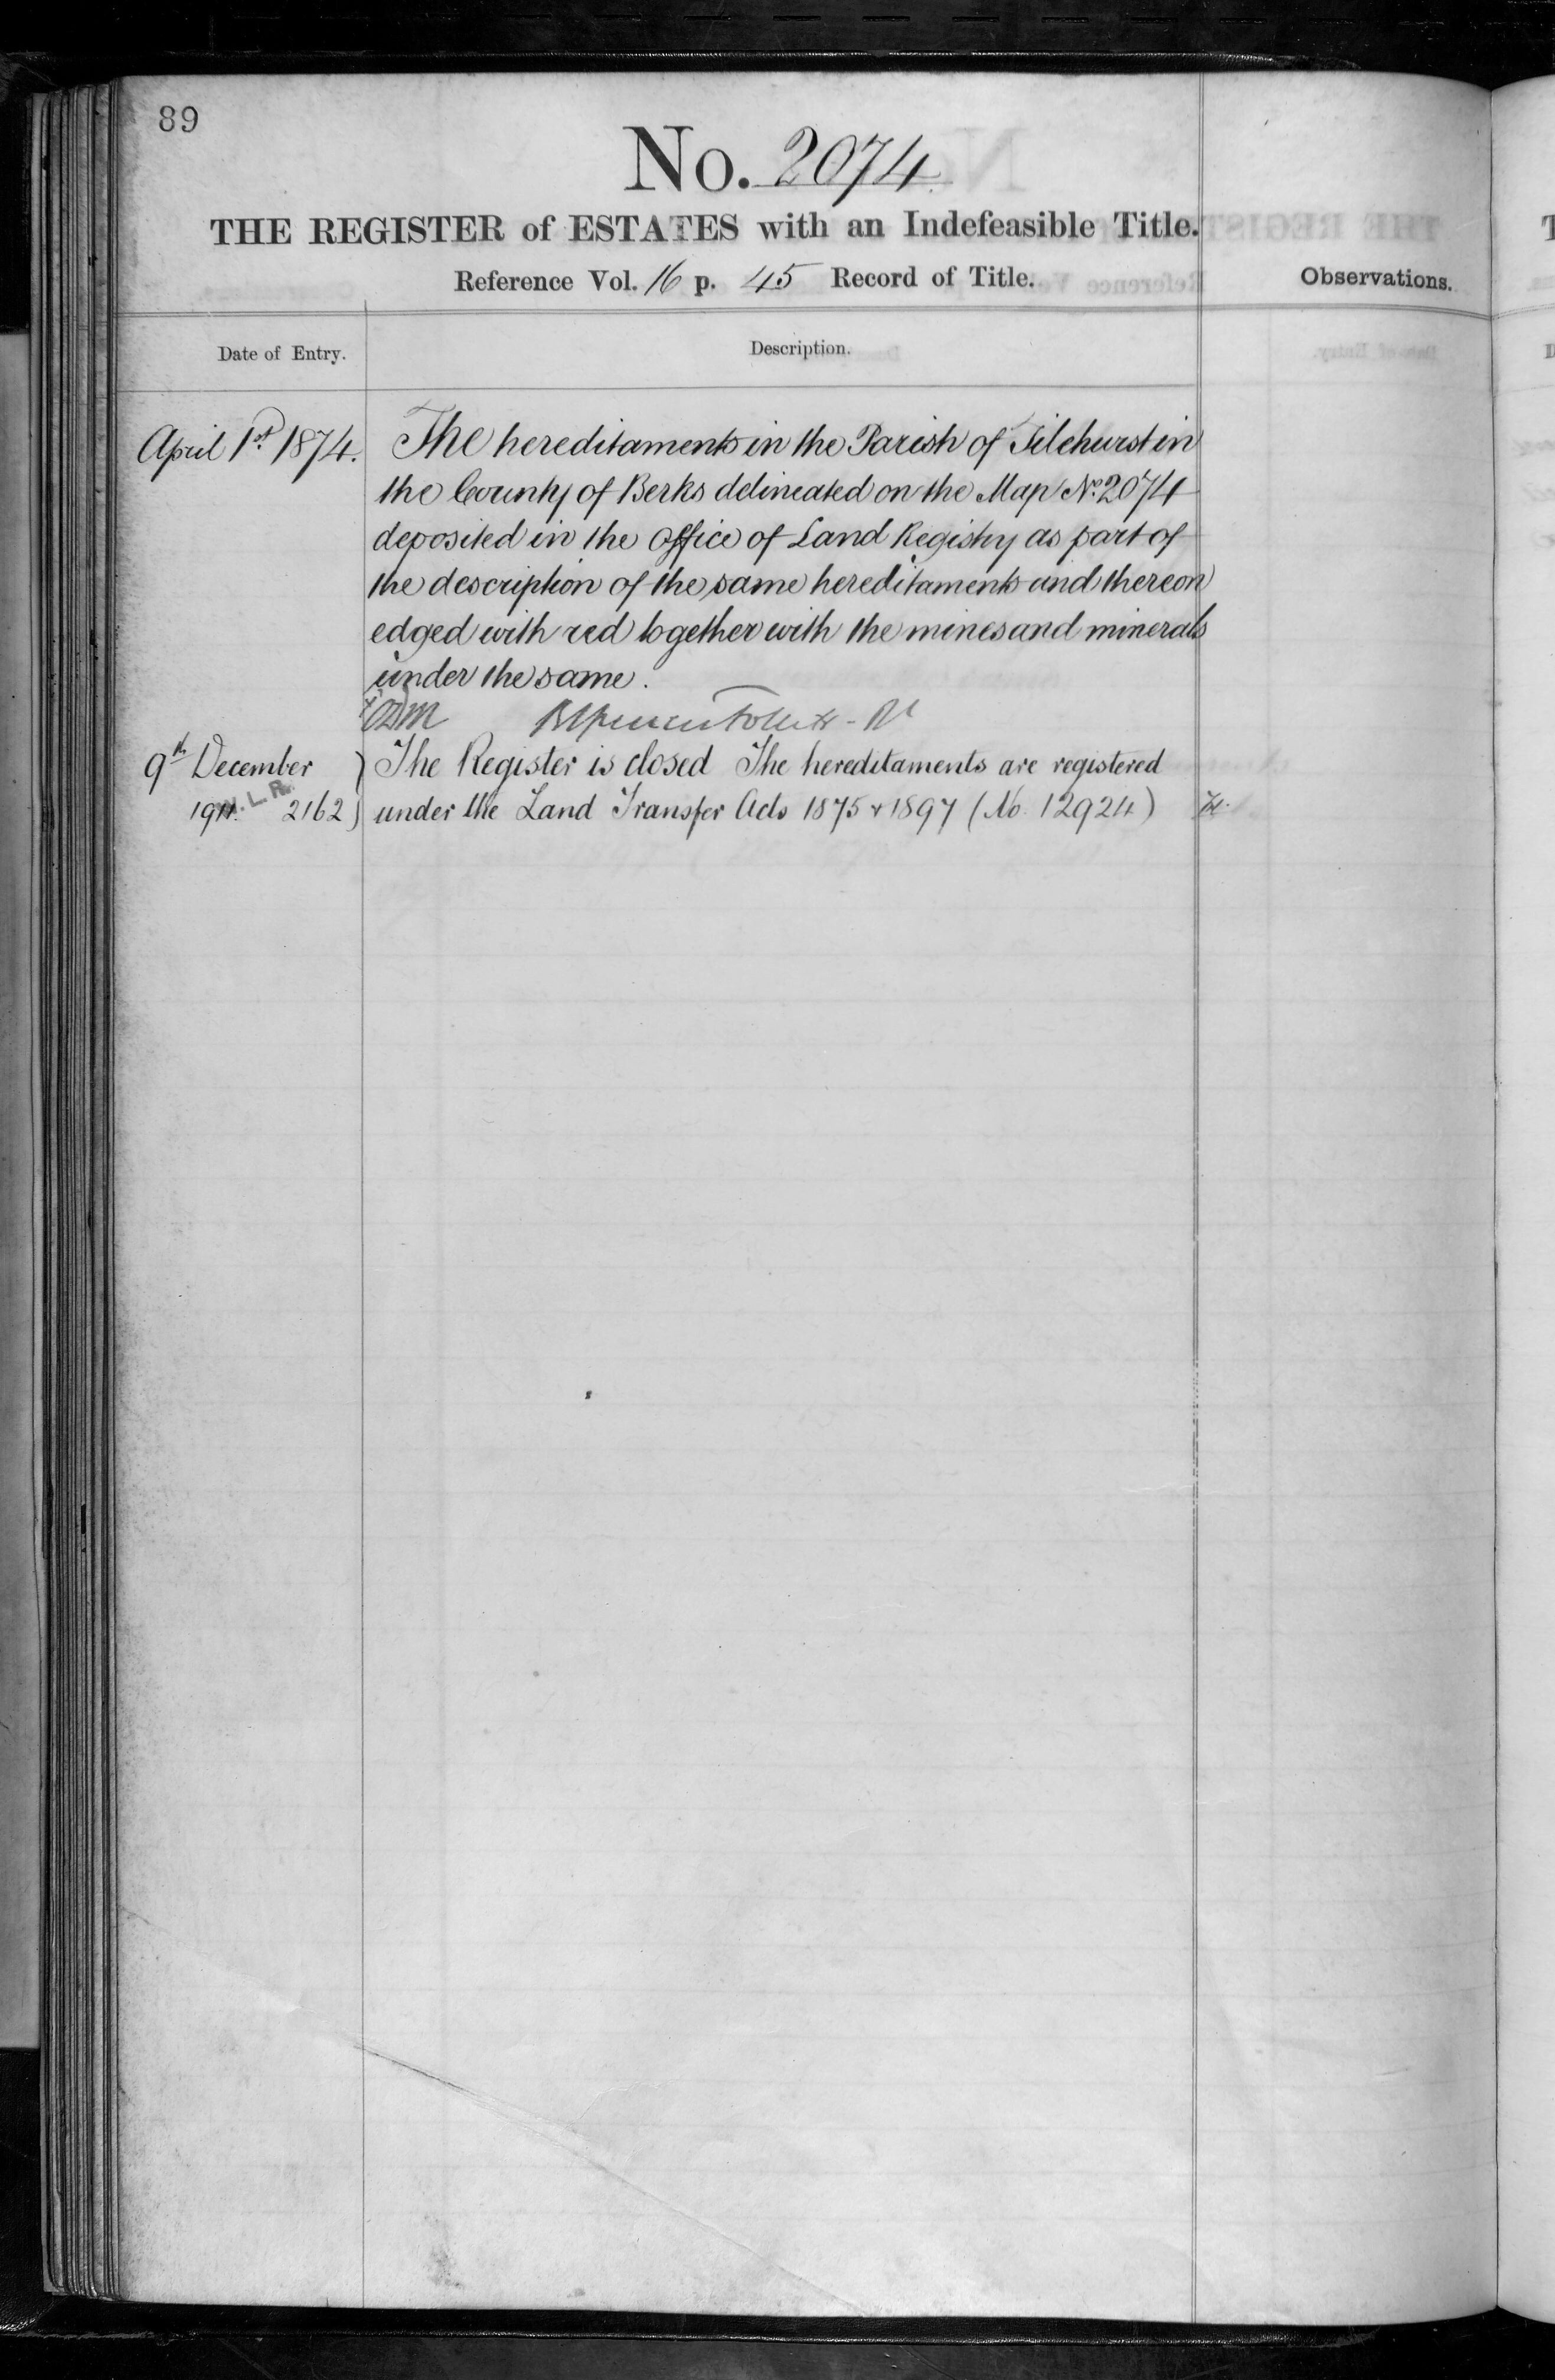 89
No. 2074
THE REGISTER of ESTATES with an Indefeasible Title.
Reference Vol. 16 p. 45 Record of Title.
Observations.
Date of Entry.
Description.
April 1st 1874.
The hereditaments in the Parish of Tilehurst in
the County of Berks delineated on the Map No. 2074
deposited in the Office of Land Registry as part of
the description of the same hereditaments and thereon
edged with red together with the mines and minerals
under the same.
9th December
1911. 2162
W.L.R.
The Register is closed The hereditaments are registered
under the Land Transfer Acts 1875 & 1897 (No. 12924)